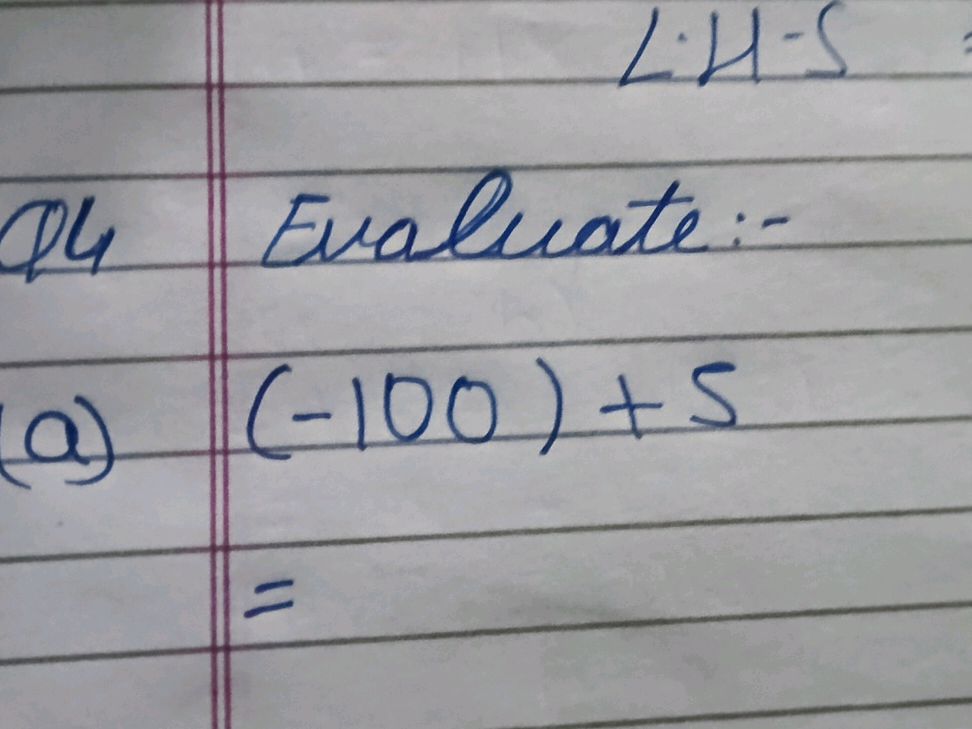 L.H-S =
Q4 Evaluate:-
(a) (-100) + 5
=